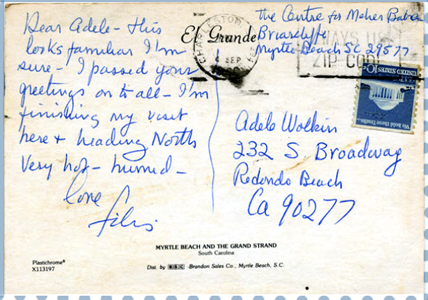 Dear Adele - This
looks familiar I'm
sure - I passed your
greetings on to all - I'm
finishing my visit
here & heading North
Very hot - humid -
love
El Grande
CHARLESTON
SEP
ALWAYS USE
ZIP CODE
the Centre for Meher Baba
Briarcliffe
Myrtle Beach SC 29577
UNITED STATES 10c
Adele Wolkin
232 S Broadway
Redondo Beach
Ca 90277
MYRTLE BEACH AND THE GRAND STRAND
South Carolina
Plastichrome®
X113197
Dist. by Brandon Sales Co., Myrtle Beach, S.C.